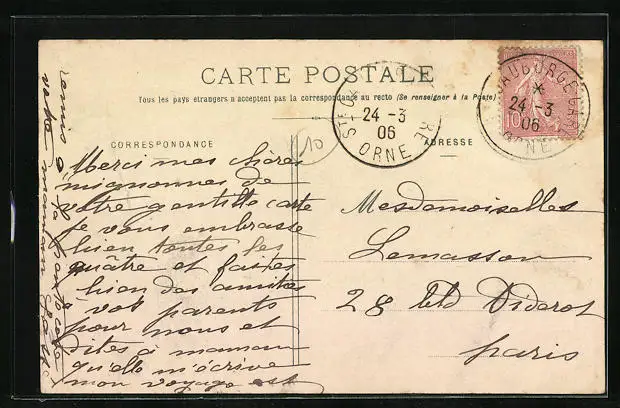 CARTE POSTALE
Tous les pays étrangers n'acceptent pas la correspondance au recto (Se renseigner à la Poste)
CORRESPONDANCE
ADRESSE
10
24 -3
06
ORNE
24 -3
06
ORNE
10
Merci mes chères
mignonnes de
votre gentille carte
je vous embrasse
bien toutes les
quatre et faites
bien des amitiés
à vos parents
pour nous et
dites à maman
qu'elle m'écrive
mon voyage est
remis
votre
Mesdemoiselles
Lemasson
28 Bld Diderot
Paris